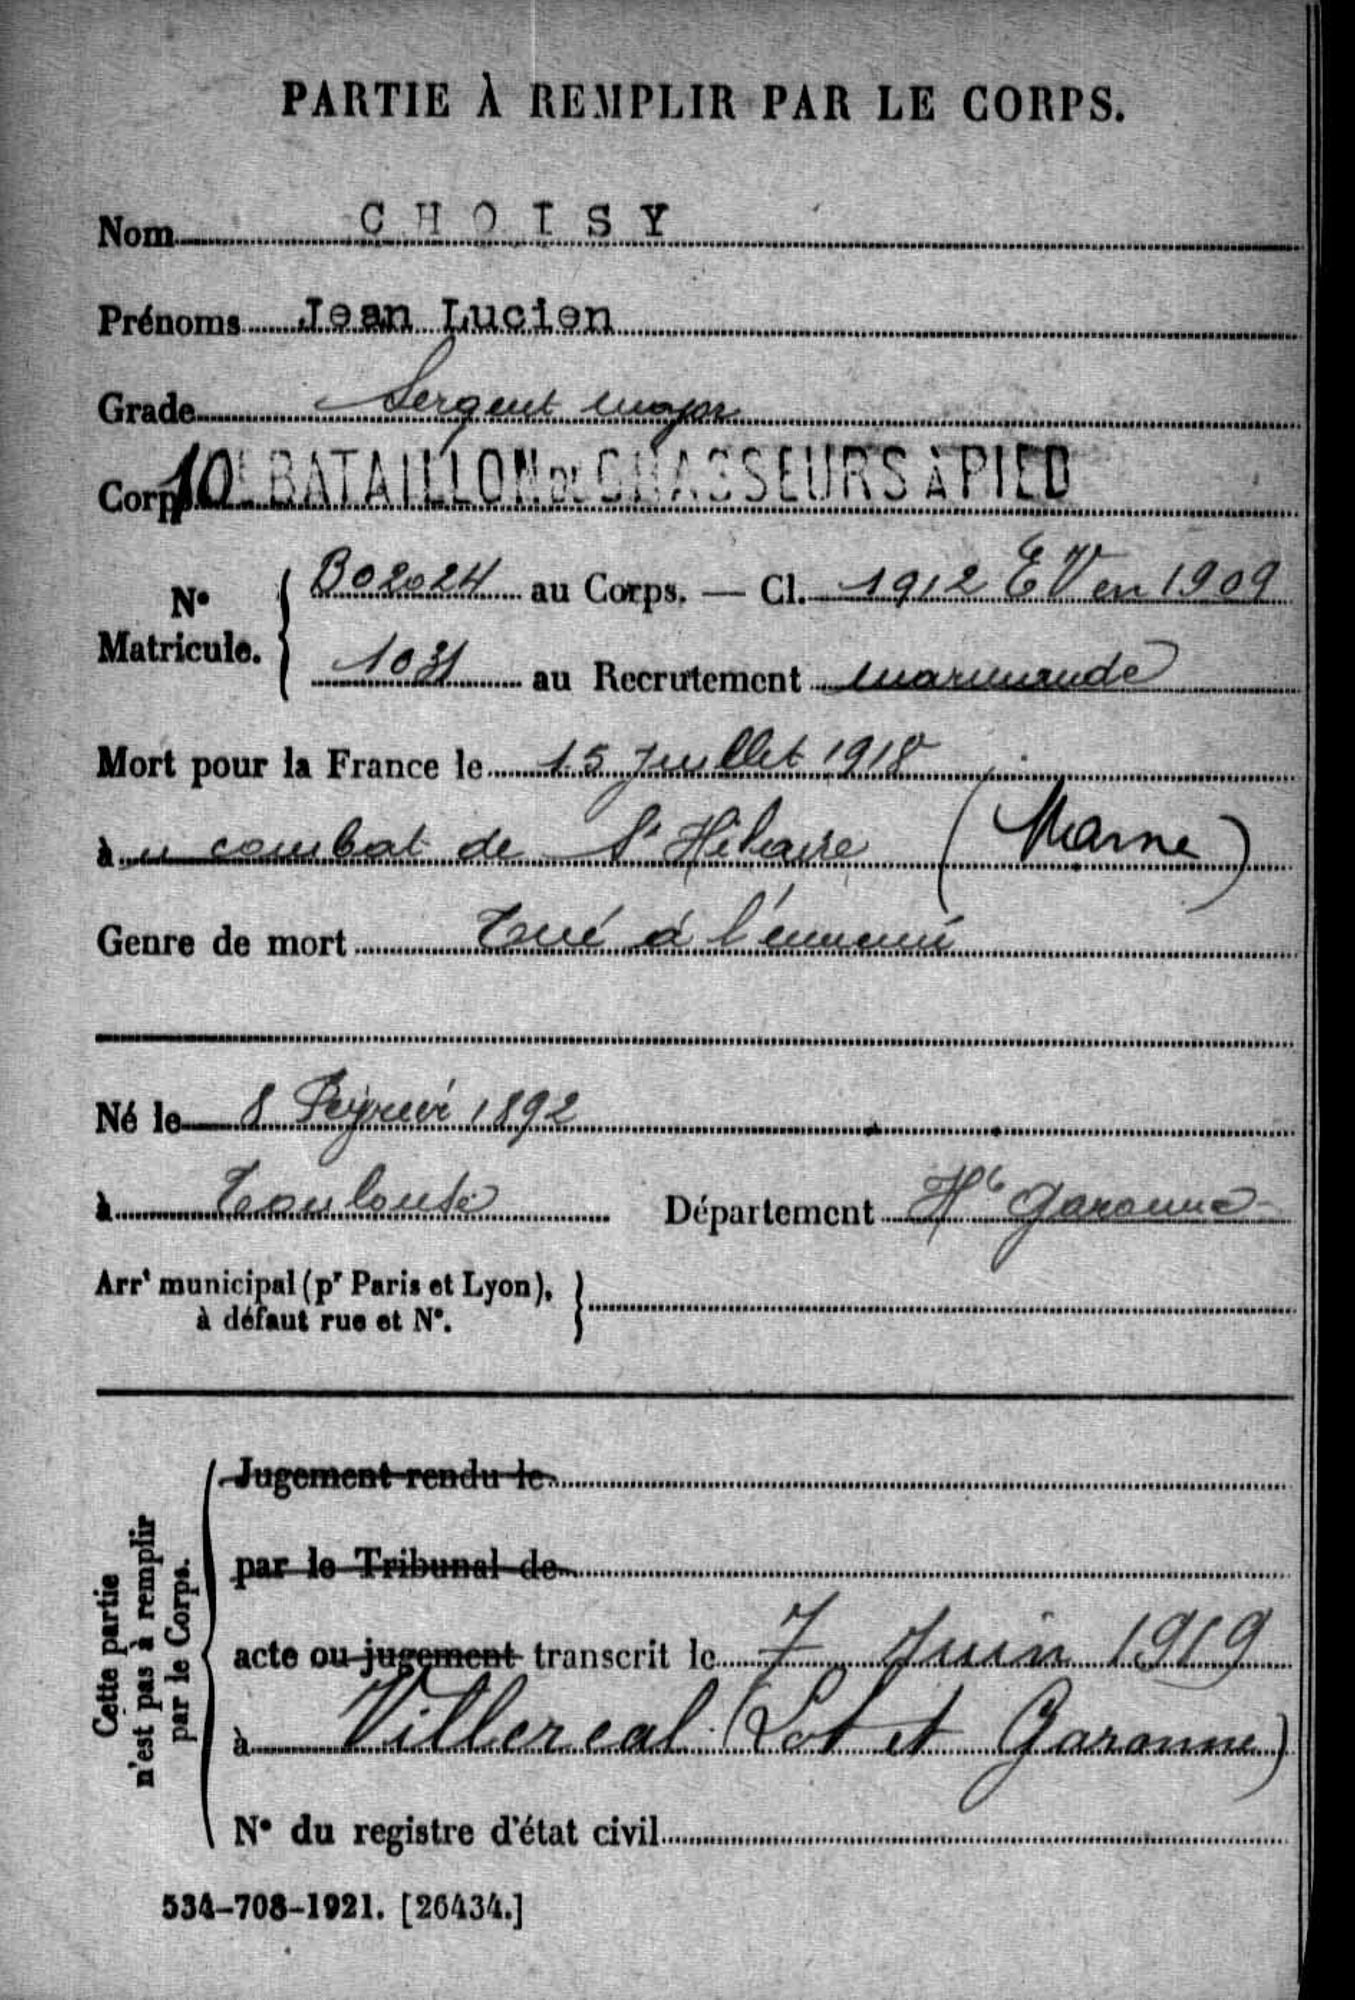 PARTIE À REMPLIR PAR LE CORPS.
Nom CHOISY
Prénoms Jean Lucien
Grade Sergent major
Corps 10e BATAILLON DE CHASSEURS À PIED
No Matricule. { B02024 au Corps. — Cl. 1912 EV en 1909
1031 au Recrutement Marmande
Mort pour la France le 15 Juillet 1918
àu combat de St Hilaire (Marne)
Genre de mort Tué à l'ennemi
Né le 8 Février 1892
à Toulouse Département Hte Garonne
Arrt municipal (pr Paris et Lyon),
à défaut rue et No.
Cette partie
n'est pas à remplir
par le Corps.
Jugement rendu le
par le Tribunal de
acte ou jugement transcrit le 7 Juin 1919
à Villereal (Lot et Garonne)
No du registre d'état civil
534-708-1921. [26434.]